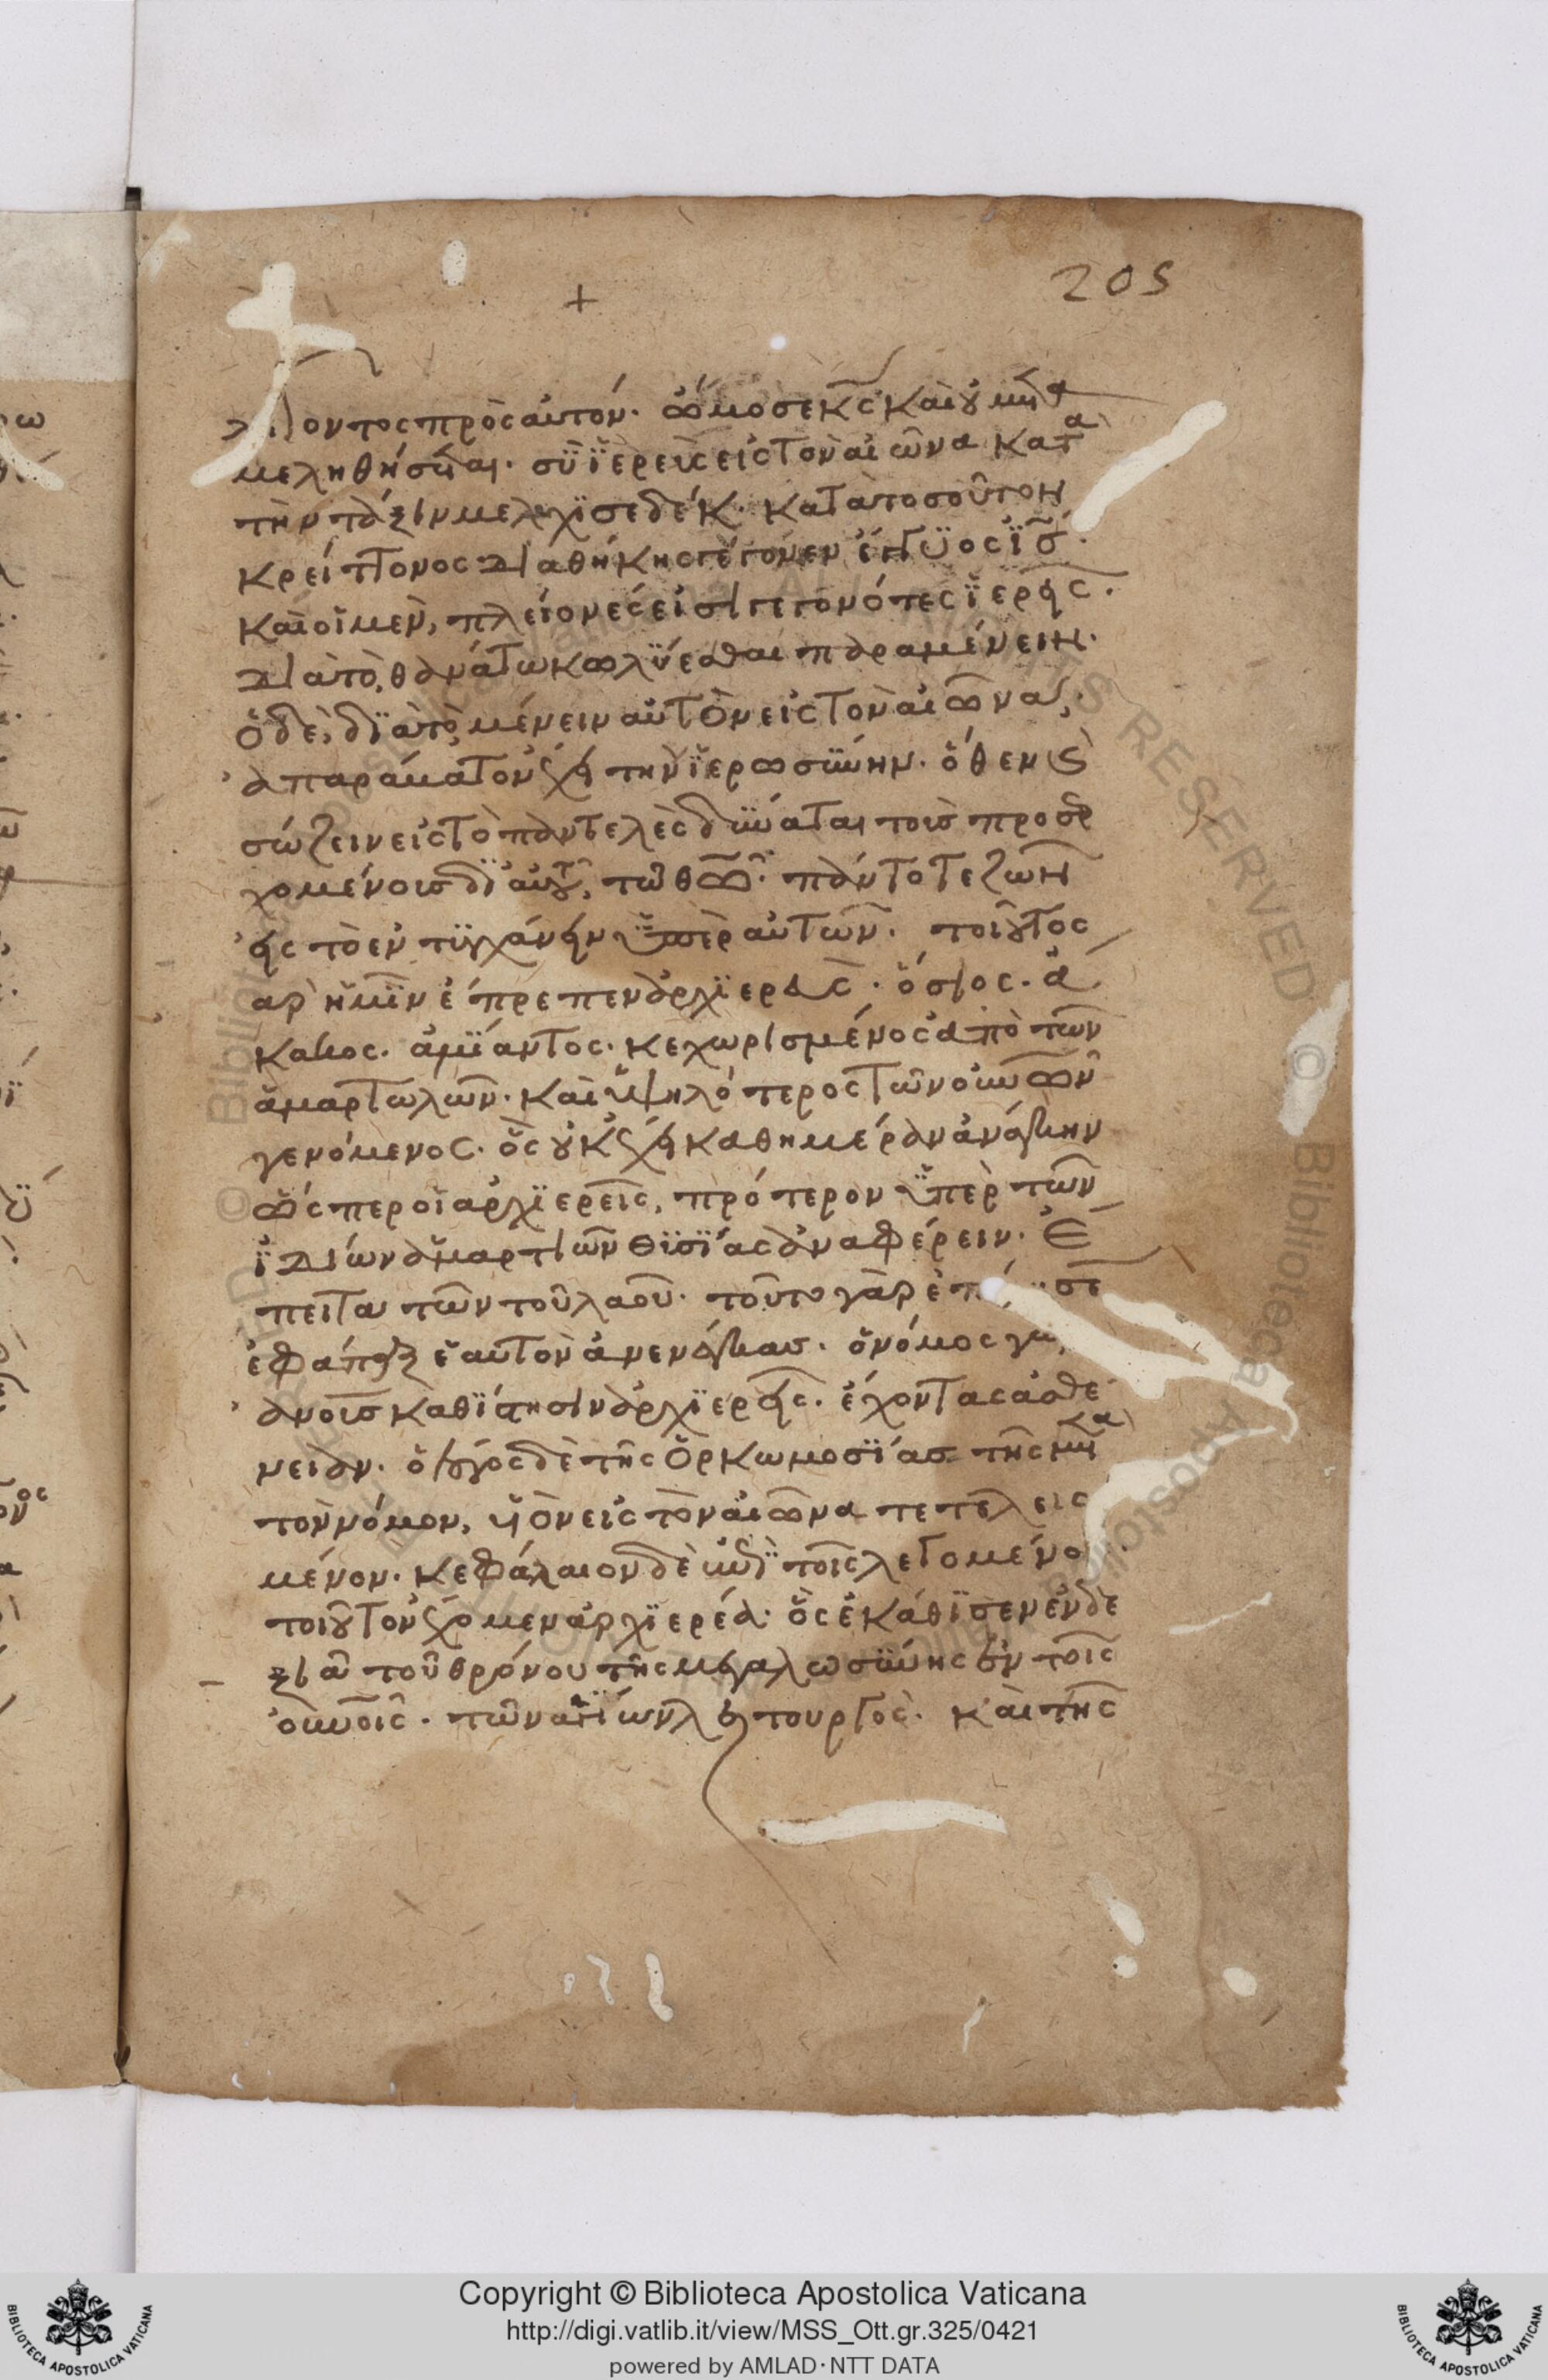 +
205
λέγοντος πρὸς αὐτόν· ὤμοσε κ̅ς̅ καὶ οὐ μετα
μεληθήσεται· σὺ ἱερεὺς εἰς τὸν αἰῶνα κατὰ
τὴν τάξιν μελχισεδέκ· κατὰ τοσοῦτον
κρείττονος διαθήκης γέγονεν ἔγγυος ι̅ς̅·
καὶ οἱ μὲν, πλείονές εἰσι γεγονότες ἱερεῖς·
διὰ τὸ, θανάτω κωλύεσθαι παραμένειν·
ὁ δὲ, διὰ τὸ, μένειν αὐτὸν εἰς τὸν αἰῶνα,
ἀπαράβατον ἔχει τὴν ἱερωσύνην· ὅθεν καὶ
σώζειν εἰς τὸ παντελὲς δύναται τοὺς προσερ
χομένους δι' αὐτοῦ, τῶ θ̅ω̅· πάντοτε ζῶν
εἰς τὸ ἐντυγχάνειν ὑπὲρ αὐτῶν· τοιοῦτος
γὰρ ἡμῖν ἔπρεπεν ἀρχιερεὺς· ὅσιος· ἄ
κακος· ἀμίαντος· κεχωρισμένος ἀπὸ τῶν
ἁμαρτωλῶν· καὶ ὑψηλότερος τῶν οὐνῶν
γενόμενος· ὃς οὐκ ἔχει καθημέραν ἀνάγκην
ὥσπερ οἱ ἀρχιερεῖς, πρότερον ὑπὲρ τῶν
ἰδίων ἁμαρτιῶν θυσίας ἀναφέρειν· ἔ
πειτα τῶν τοῦ λαοῦ· τοῦτο γὰρ ἐποίησεν
ἐφάπαξ ἑαυτὸν ἀνενέγκας· ὁ νόμος γὰρ
ἀνους καθίστησιν ἀρχιερεῖς· ἔχοντας ἀσθέ
νειαν· ὁ λόγος δὲ τῆς ὁρκωμοσίας τῆς μετὰ
τὸν νόμον, υἱὸν εἰς τὸν αἰῶνα τετελειω
μένον· κεφάλαιον δὲ ἐπὶ τοῖς λεγομένοις·
τοιοῦτον ἔχομεν ἀρχιερέα· ὃς ἐκάθισεν ἐν δε
ξιᾶ τοῦ θρόνου τῆς μεγαλωσύνης ἐν τοῖς
οὐνοῖς· τῶν ἁγίων λειτουργὸς· καὶ τῆς
Copyright © Biblioteca Apostolica Vaticana
http://digi.vatlib.it/view/MSS_Ott.gr.325/0421
powered by AMLAD·NTT DATA
BIBLIOTECA APOSTOLICA VATICANA
BIBLIOTECA APOSTOLICA VATICANA